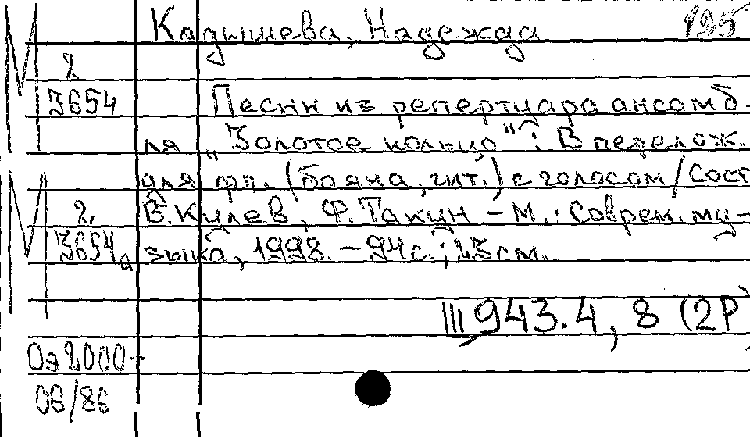 Кадышева, Надежда 195
2
З654
Песни из репертуара ансамб-
ля „Золотое кольцо“: В перелож.
для фп. (баяна, гит.) с голосом / Сост
В. Кулев, Ф. Такун – М.: Соврем. му-
2.
З654а зыка, 1998. – 94 с.; 23 см.
943.4, 8 (2Р)
Оз 2000-
06/86